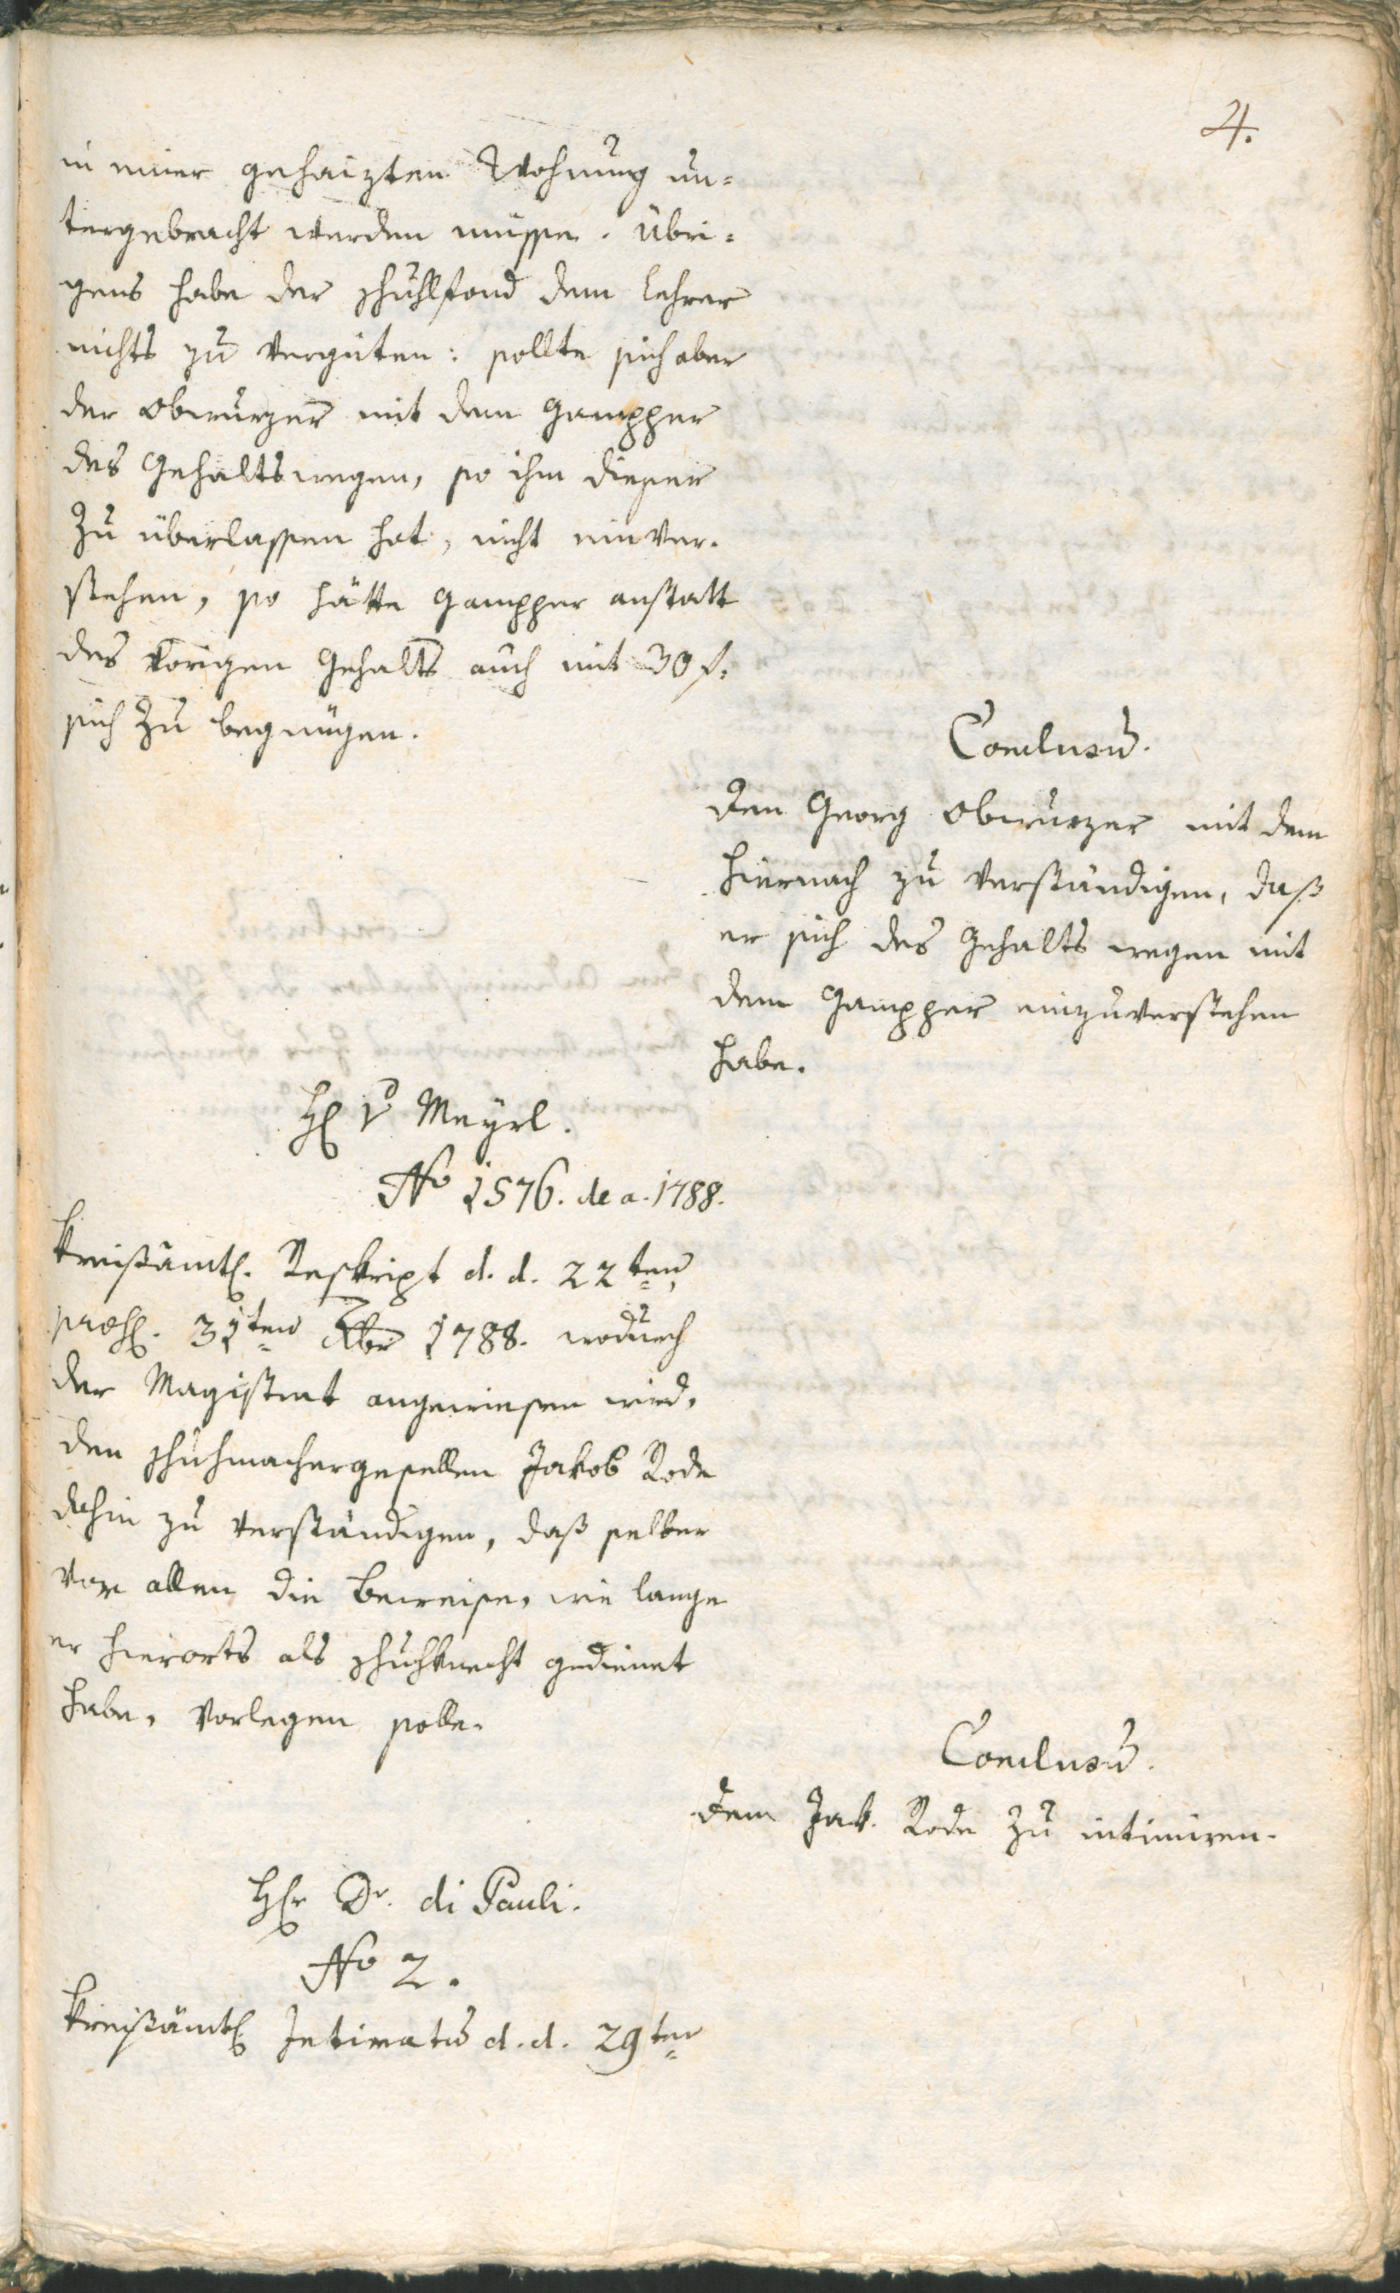 4.
in einer gehaizten Wohnung un-
tergebracht werden müsse. Übri-
gens habe der Schuhlfond dem Lehrer
nichts zu vergüten: sollte sich aber
der Obwurzer mit dem Gampper
des Gehalts wegen, so ihm dieser
zu überlassen hat, nicht einver-
stehen, so hätte Gampper anstatt
des vorigen Gehalts auch mit 30 f.
sich zu begnügen.
Conclusum.
Den Georg Obwurzer mit dem
hiernach zu verständigen, daß
er sich des Gehalts wegen mit
dem Gampper einzuverstehen
habe.
H. v. Meyrl.
No 1576. de a. 1788.
Kreißämtl. Reskript d. d. 22ten,
praes. 31ten Xbr 1788. wodurch
der Magistrat angewiesen wird,
den Schuhmachergesellen Jakob Rode
dahin zu verständigen, daß selber
vor allem die Beweise, wie lange
er hierorts als Schuhknecht gedienet
habe, vorlegen solle.
Conclusum.
Dem Jak. Rode zu intimiren.
Hr. Dr. di Pauli.
No 2.
Kreißämtl. Intimatum d. d. 29ten